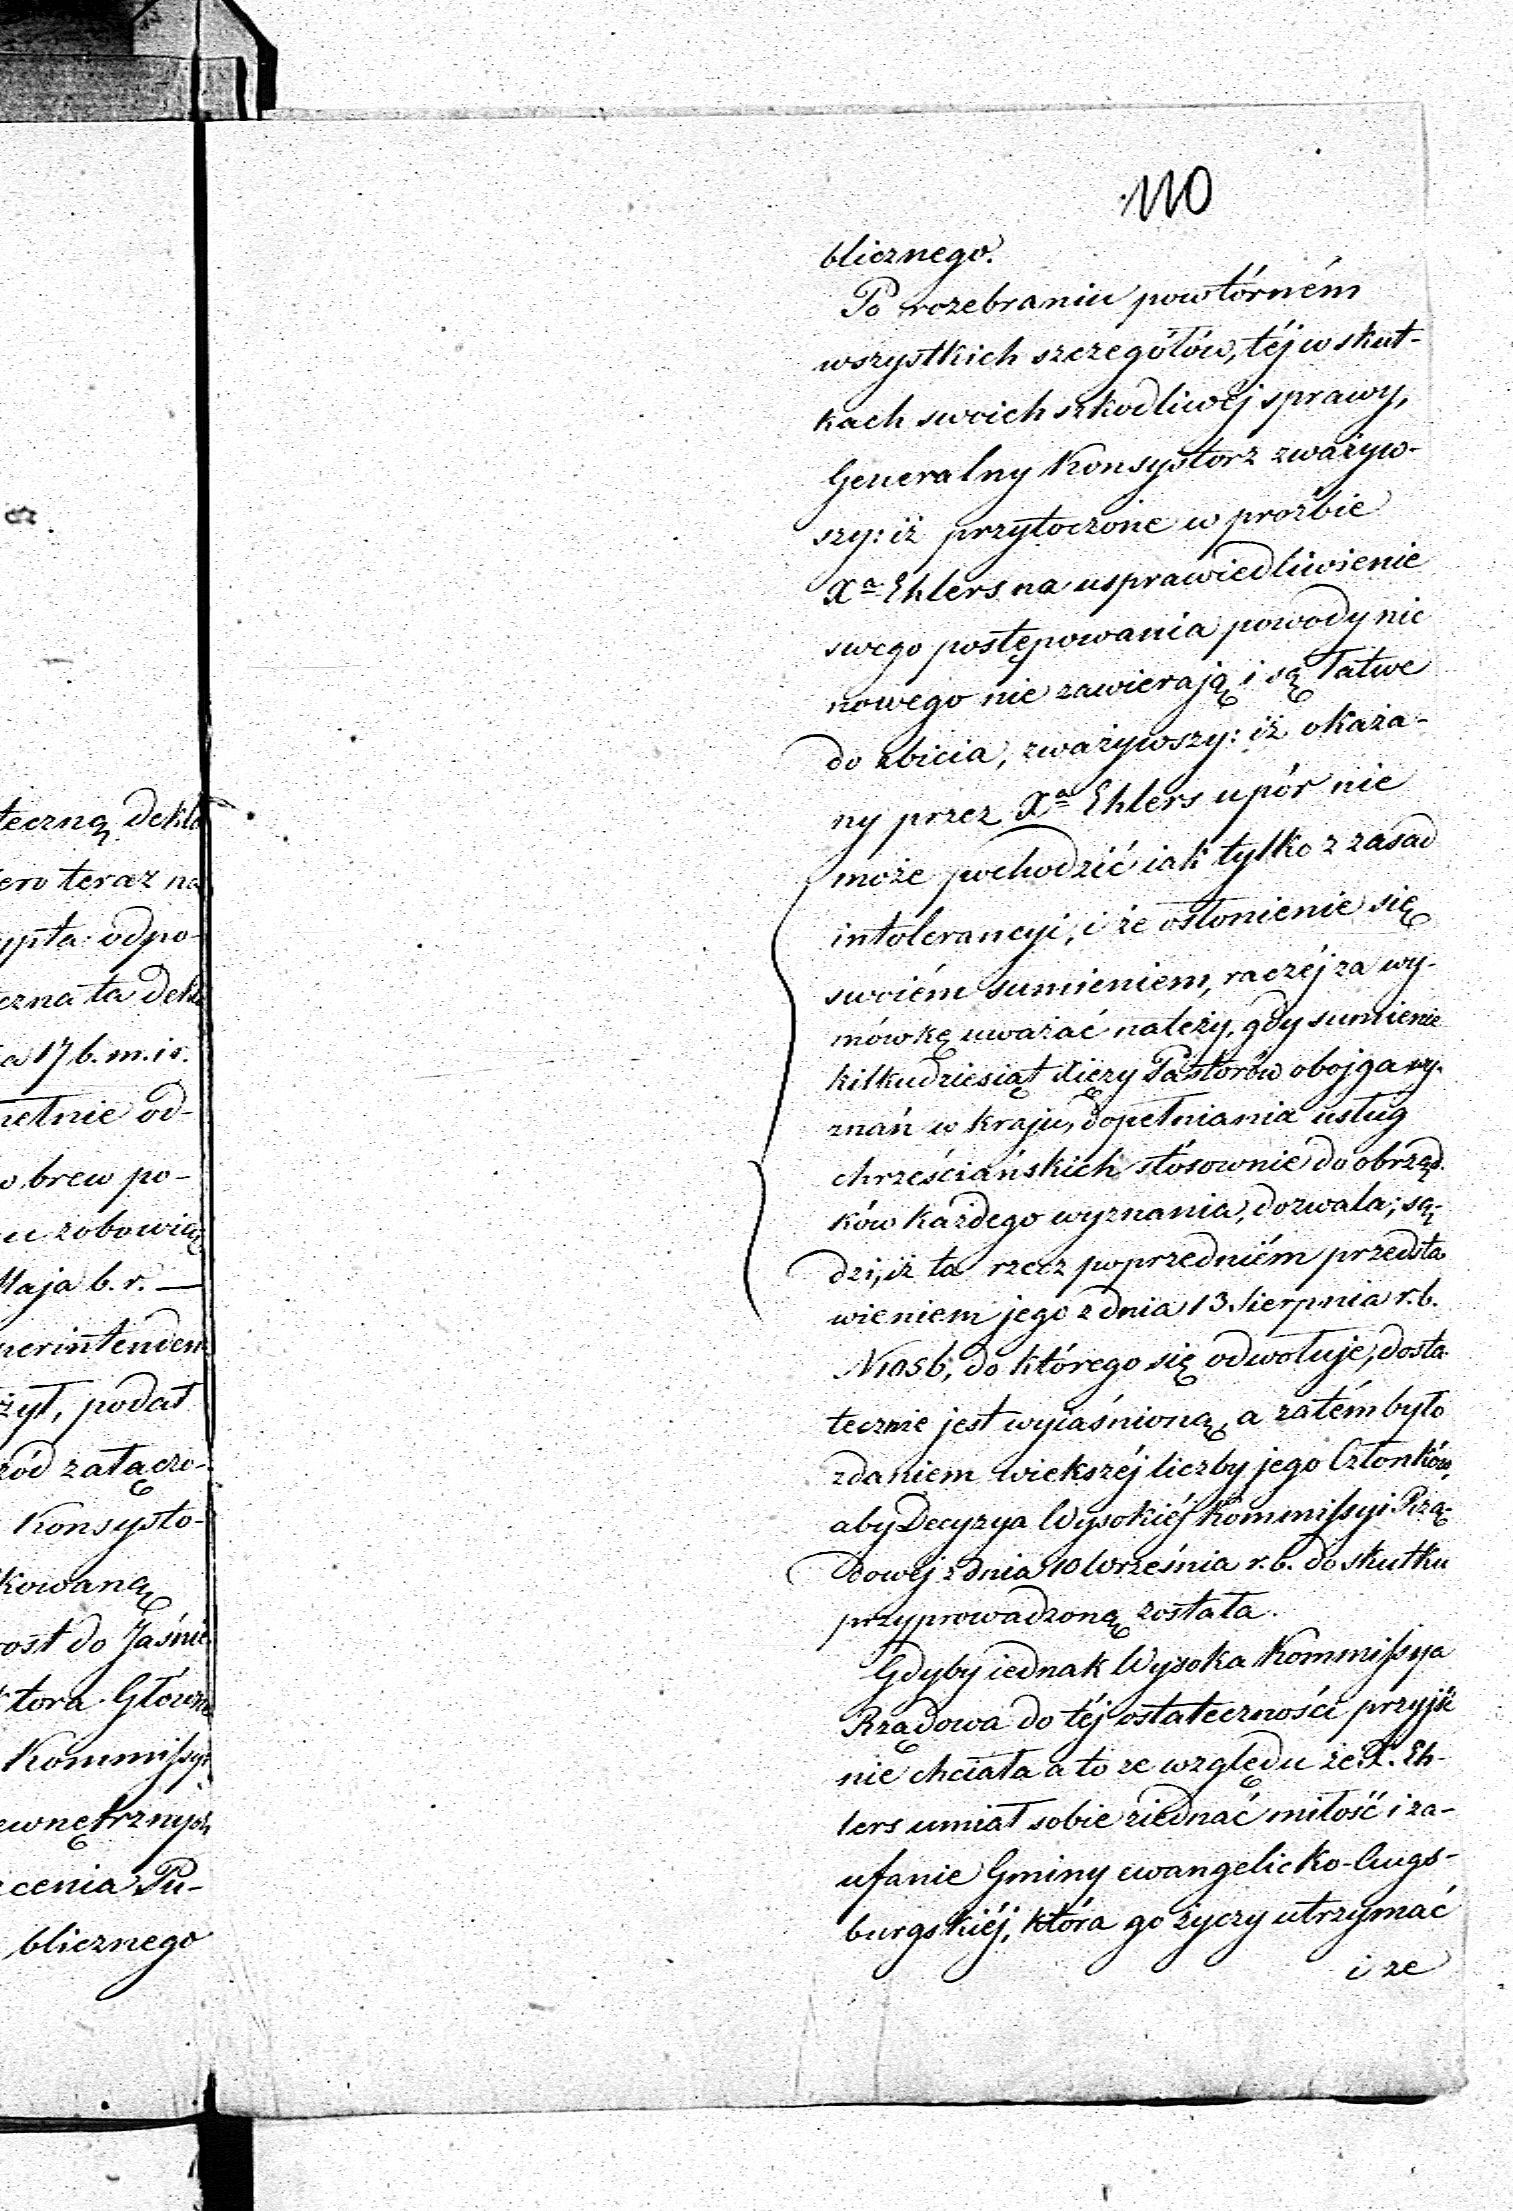 110
blicznego.
Po rozebraniu powtórném
wszystkich szczegółów, téj w skut-
kach swoich szkodliwéj sprawy,
Generalny Konsystorz zważyw-
szy: iż przytoczone w prośbie
Xa Ehlers na usprawiedliwienie
swego postępowania powody nic
nowego nie zawierają i są łatwe
do zbicia, zważywszy: iż okaza-
ny przez Xa Ehlers upór nie
może pochodzić iak tylko z zasad
intolerancyi, i że osłonienie się
swoiém sumieniem, raczéj za wy-
mówkę uważać należy, gdy sumienie
kilkudziesiąt Xięży Pastorów obojga wy-
znań w kraju, dopełniania usług
chrześciańskich stósownie do obrząd-
ków każdego wyznania, dozwala; są-
dzi, iż ta rzecz poprzedniém przedsta
wieniem jego z dnia 13 Sierpnia r. b.
N1056, do którego się odwołuje, dosta
tecznie jest wyiaśnioną, a zatém było
zdaniem większéj liczby jego Członków,
aby Decyzya Wysokiéj Kommissyi Rzą-
dowéj z dnia 10 Września r. b. do skutku
przyprowadzoną została.
Gdyby iednak Wysoka Kommissya
Rządowa do téj ostateczności przyjść
nie chciała a to ze względu że X. Eh-
lers umiał sobie ziednać miłość i za-
ufanie Gminy ewangelicko-Augs-
burgskiéj, która go życzy utrzymać
i ze
teczną dekla
ero teraz na
ypta odpo-
czna ta dekl
a 17 b. m. i r.
pełnie od-
w brew po-
u zobowią
Maja b. r. —
perintenden
żył, podał
ród załączo-
Konsysto-
kowaną
rost do Jaśnie
ktora Główne
Kommissyi
ewnętrznych
ecenia Pu-
blicznego